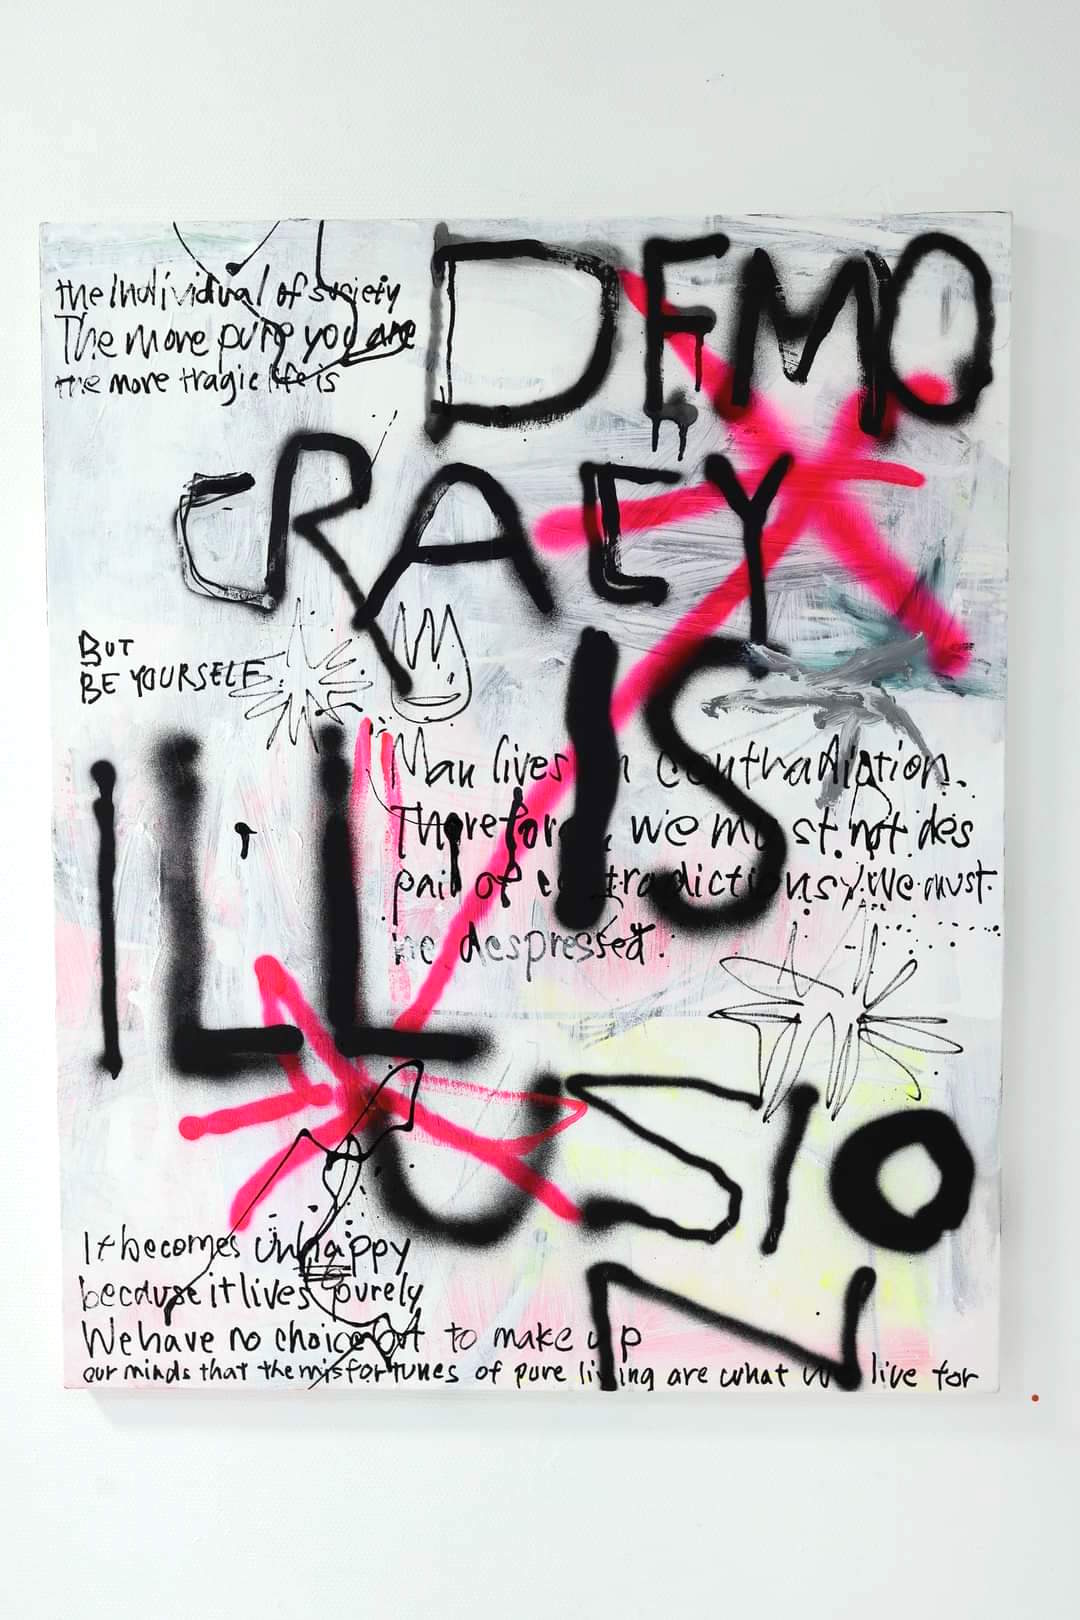 the individual of society
The more pure you are
the more tragic life is
DEMO
CRACY
IS
BUT
BE YOURSELF
ILLUSION
Man lives in contradiction.
Therefore, we must not des
pair of contradictions, We must
be despressed.
It becomes unhappy
because it lives purely
We have no choice but to make up
our minds that the misfortunes of pure living are what we live for